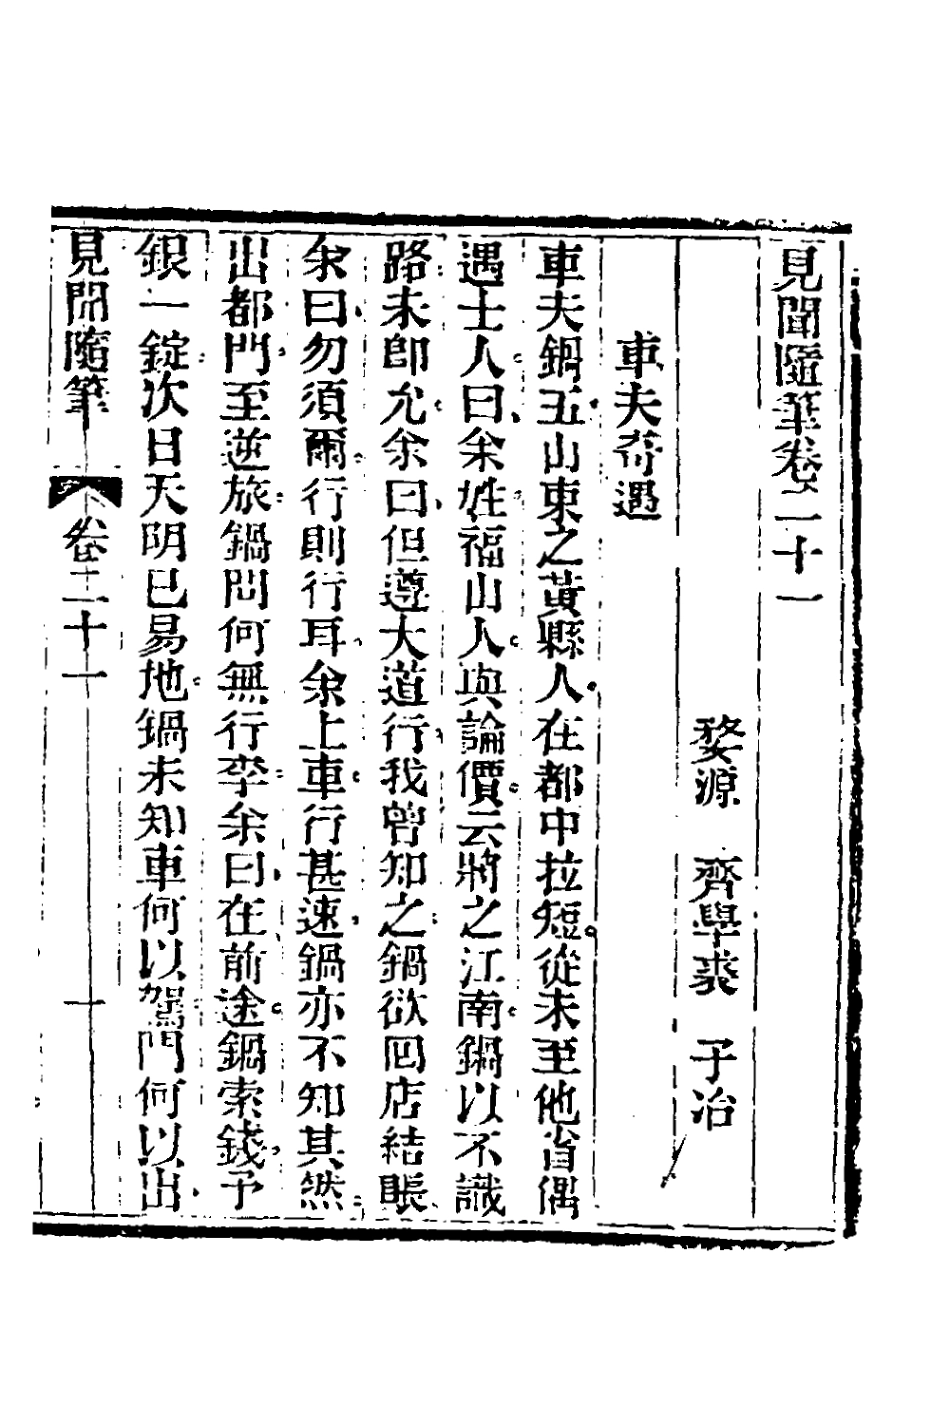 見聞隨筆卷二十一
婺源 齊學裘 子冶
車夫奇遇
車夫鍋五山東之黃縣人在都中拉短從未至他省偶
遇士人曰余姓福山人與論價云將之江南鍋以不識
路未卽允余曰但遵大道行我曾知之鍋欲回店結賬
余曰勿須爾行則行耳余上車行甚速鍋亦不知其然
出都門至逆旅鍋問何無行李余曰在前途鍋索錢予
銀一錠次日天明已易地鍋未知車何以駕門何以出
見聞隨筆 卷二十一 一